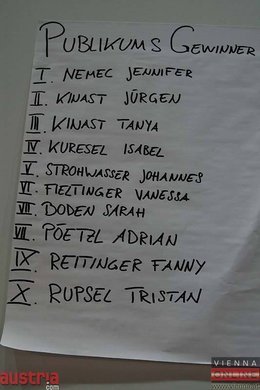 PUBLIKUMS GEWINNER
I. NEMEC JENNIFER
II. KINAST JÜRGEN
III. KINAST TANYA
IV. KURESEL ISABEL
V. STROHWASSER JOHANNES
VI. FIELTINGER VANESSA
VII. BODEN SARAH
VIII. PÖETZL ADRIAN
IX. REITINGER FANNY
X. RUPSEL TRISTAN
austria
.com
VIENNA
ONLINE